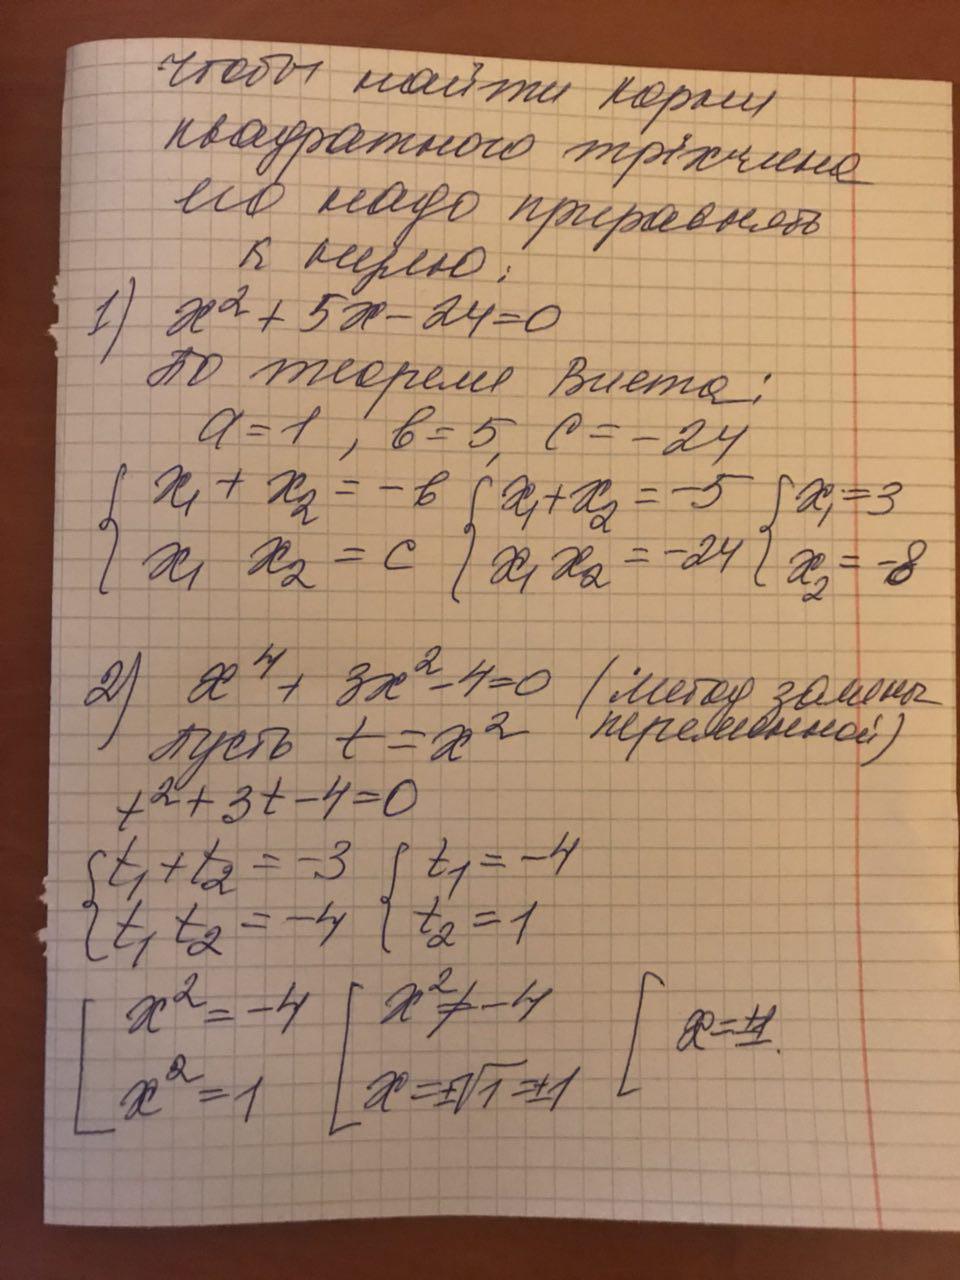 Чтобы найти корни
квадратного трiхчлена
его надо приравнять
к нулю.
1) x² + 5x - 24 = 0
По теореме Виета:
a = 1 , в = 5, c = -24
{ x₁ + x₂ = -в { x₁ + x₂ = -5 { x₁ = 3
x₁ x₂ = c x₁ x₂ = -24 x₂ = -8
2) x⁴ + 3x² - 4 = 0 (метод замены
переменной)
Пусть t = x²
t² + 3t - 4 = 0
{ t₁ + t₂ = -3 { t₁ = -4
t₁ t₂ = -4 t₂ = 1
[ x² = -4 [ x² ≠ -4 [ x = ±1.
x² = 1 x = ±√1 = ±1